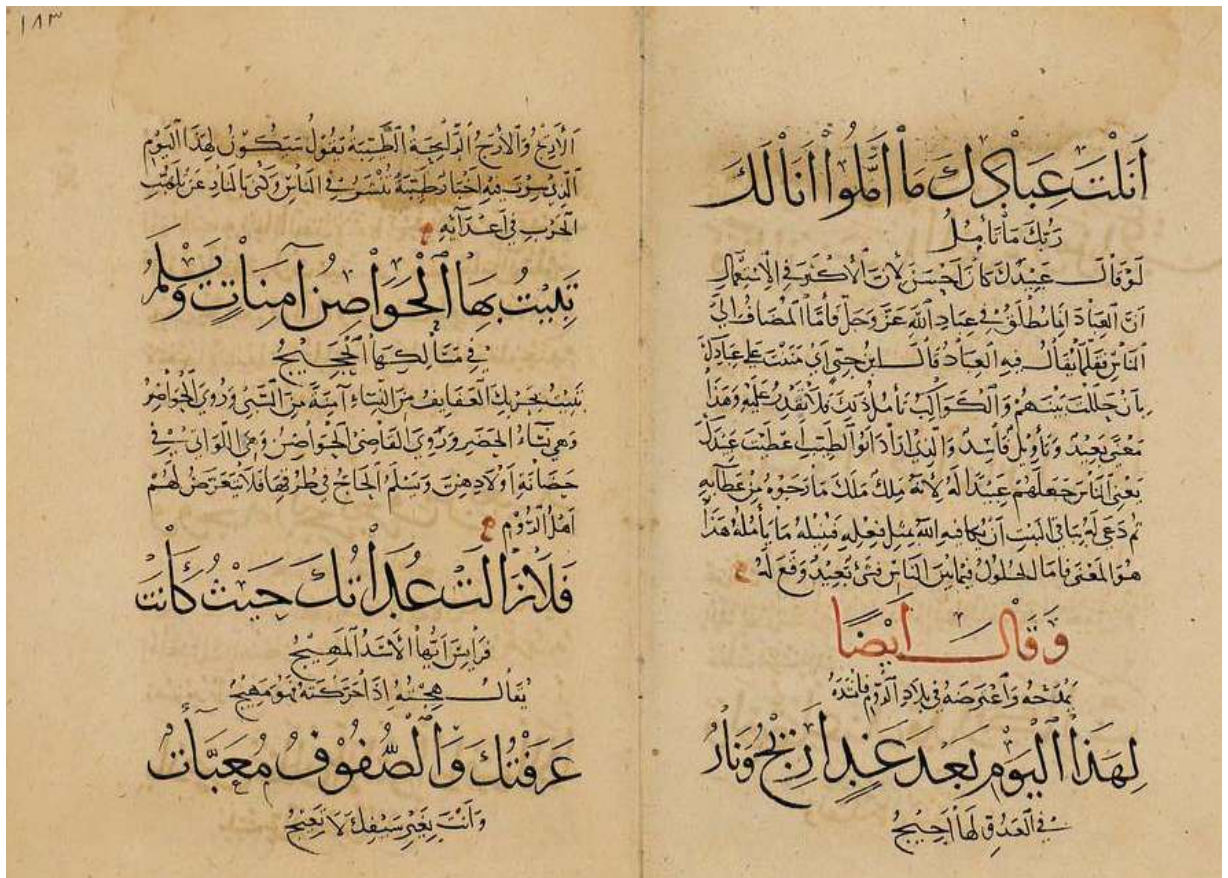 أَنَلْتَ عِبَادَكَ مَا أَمَّلُوا أَنَالَكَ
رَبُّكَ مَا تَأْمُلُ
لو قال عبيدك كان أحسن لأن الأكثر في الاستعمال
أن العباد إنما يطلق في عباد الله عز وجل فأما المضاف إلى
الناس فقلما يقال فيه العباد قال ابن جني أي مننت على عبادك
بأن حللت بينهم والكواكب تأمل ذلك فلا تقدر عليه وهذا
معنى بعيد وتأويل فاسد والذي أراد أبو الطيب أعطيت عبدك
يعني الناس جعلهم عبيدا له لأنه ملك ملك ما رجوه من عطائه
ثم دعى له بباقي البيت أن يكافيه الله مثل فعله فينيله ما يأمله هذا
هو المعنى فاما الحلول فيما بين الناس فشئ بعيد وقع له
وَقَالَ أَيْضًا
يمدحه واعترضه في بلاد الروم فانشده
لِهَذَا الْيَوْمِ بَعْدَ غَدٍ أَرِيجُ وَنَارٌ
في العدو لها أجيج
١٨٣
الأريج والأرج الرائحة الطيبة تقول ستكون لهذا اليوم
الذي سرت فيه اخبار طيبة تنتشر في الناس وكنى بالنار عن تلهب
الحرب في أعدائه
تَبِيتُ بِهَا الْحَوَاصِنُ آمِنَاتٍ وَتَسْلَمُ
في مسالكها الحجيج
تبيت بحربك العفايف من النساء آمنة من السبي وروي الحواضر
وهي نساء الحضر وروي القاضي الحواضن وهي اللواتي في
حضانة أولادهن وتسلم الحاج في طرقها فلا يتعرض لهم
أهل الروم
فَلَا زَالَتْ عُدَاتُكَ حَيْثُ كَانَتْ
فرايس أيها الأسد المهيج
يقال هجته إذا حركته فهو مهيج
عَرَفْتُكَ وَالصُّفُوفُ مُعَبَّآتٌ
وأنت بغير سيفك لا تعيج